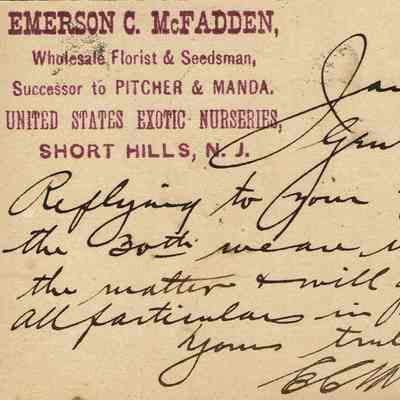 EMERSON C. McFADDEN,
Wholesale Florist & Seedsman,
Successor to PITCHER & MANDA.
UNITED STATES EXOTIC NURSERIES,
SHORT HILLS, N. J.
Replying to your
the 30th we are
the matter & will
all particulars in
Yours